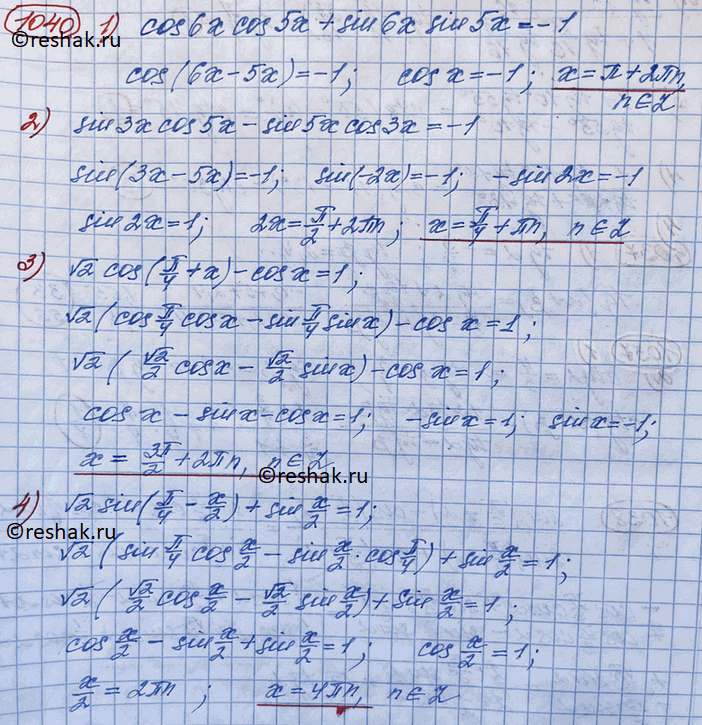 1040 1) cos6x cos5x + sin6x sin5x = -1
cos(6x-5x) = -1; cos x = -1; x = π + 2πn,
n∈Z
2) sin3x cos5x - sin5x cos3x = -1
sin(3x-5x) = -1; sin(-2x) = -1; -sin2x = -1
sin2x = 1; 2x = π/2 + 2πn; x = π/4 + πn, n∈Z
3) √2 cos(π/4 + x) - cos x = 1;
√2 (cos π/4 cos x - sin π/4 sin x) - cos x = 1;
√2 (√2/2 cos x - √2/2 sin x) - cos x = 1;
cos x - sin x - cos x = 1; -sin x = 1; sin x = -1;
x = 3π/2 + 2πn, n∈Z
©reshak.ru
4) √2 sin(π/4 - x/2) + sin x/2 = 1;
©reshak.ru
√2 (sin π/4 cos x/2 - sin x/2 · cos π/4) + sin x/2 = 1;
√2 (√2/2 cos x/2 - √2/2 sin x/2) + sin x/2 = 1;
cos x/2 - sin x/2 + sin x/2 = 1; cos x/2 = 1;
x/2 = 2πn; x = 4πn, n∈Z
©reshak.ru